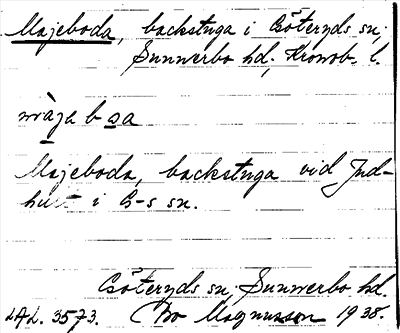 Majeboda, backstuga i Göteryds sn,
Sunnerbo hd, Kronob. l.
màja b o̲a
Majeboda, backstuga vid Jud-
hult i G-s sn.
Göteryds sn, Sunnerbo hd.
LAL. 3573. Bo Magnusson 1938.